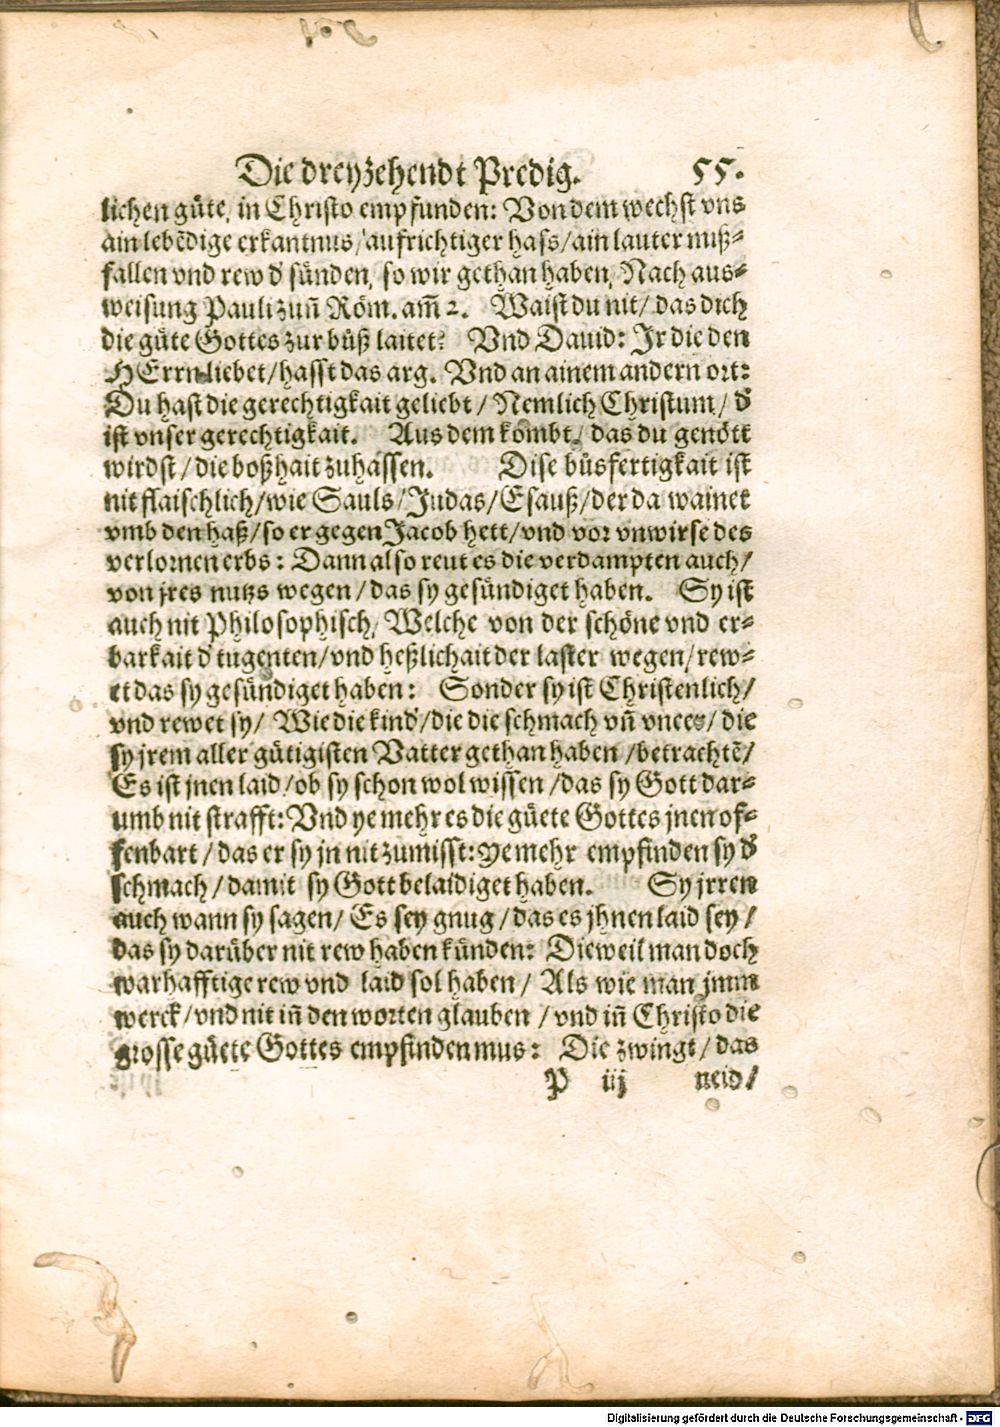 Die dreyzehendt Predig. 55.
lichen güte, in Christo empfunden: Von dem wechst vns
ain lebẽdige erkantnus/ aufrichtiger hass/ ain lauter miß-
fallen vnd rew d' sünden, so wir gethan haben, Nach aus-
weisung Pauli zuñ Röm. am̃ 2. Waist du nit/ das dich
die güte Gottes zur bůß laitet? Vnd Dauid: Ir die den
HErrn liebet/ hasst das arg. Vnd an ainem andern ort:
Du hast die gerechtigkait geliebt/ Nemlich Christum/ d'
ist vnser gerechtigkait. Aus dem kombt/ das du genött
wirdst/ die boßhait zuhassen. Dise bůsfertigkait ist
nit flaischlich/ wie Sauls/ Judas/ Esauß/ der da wainet
vmb den haß/ so er gegen Jacob hett/ vnd vor vnwirse des
verlornen erbs: Dann also reut es die verdampten auch/
von jres nutzs wegen/ das sy gesündiget haben. Sy ist
auch nit Philosophisch/ Welche von der schöne vnd er-
barkait d' tugenten/ vnd heßlichait der laster wegen/ rew-
et das sy gesündiget haben: Sonder sy ist Christenlich/
vnd rewet sy/ Wie die kind'/ die die schmach vñ vnees/ die
sy jrem aller gütigisten Vatter gethan haben/ betrachtẽ/
Es ist jnen laid/ ob sy schon wol wissen/ das sy Gott dar-
umb nit strafft: Vnd ye mehr es die güete Gottes jnen of-
fenbart/ das er sy jn nit zumisst: ye mehr empfinden sy d'
schmach/ damit sy Gott belaidiget haben. Sy jrren
auch wann sy sagen/ Es sey gnug/ das es jhnen laid sey/
das sy darüber nit rew haben künden: Dieweil man doch
warhafftige rew vnd laid sol haben/ Als wie man jmm
werck/ vnd nit iñ den worten glauben/ vnd iñ Christo die
grosse güete Gottes empfinden mus: Die zwingt/ das
P iij neid/
Digitalisierung gefördert durch die Deutsche Forschungsgemeinschaft - DFG